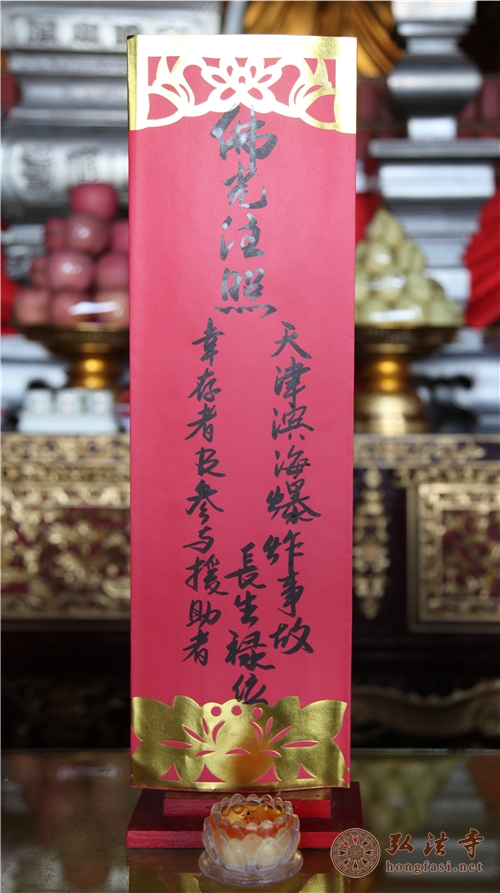 佛光注照
天津滨海爆炸事故
幸存者及參与援助者
長生禄位
弘法寺
hongfasi.net